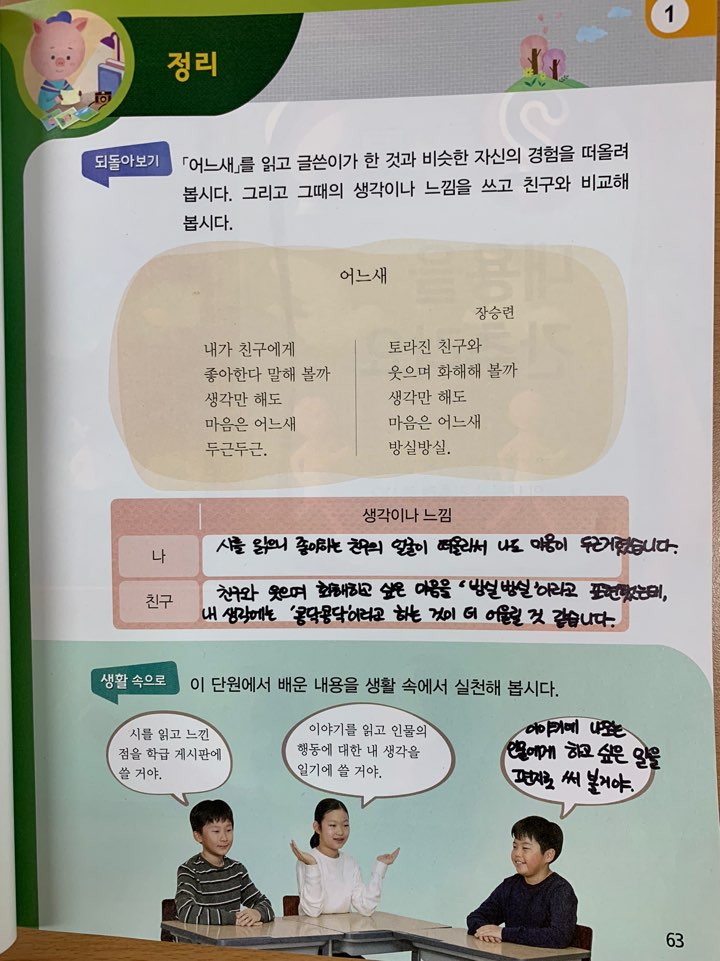 1
정리
되돌아보기
「어느새」를 읽고 글쓴이가 한 것과 비슷한 자신의 경험을 떠올려
봅시다. 그리고 그때의 생각이나 느낌을 쓰고 친구와 비교해
봅시다.
어느새
장승련
내가 친구에게
좋아한다 말해 볼까
생각만 해도
마음은 어느새
두근두근.
토라진 친구와
웃으며 화해해 볼까
생각만 해도
마음은 어느새
방실방실.
생각이나 느낌
나
시를 읽으니 좋아하는 친구의 얼굴이 떠올라서 나도 마음이 두근거렸습니다.
친구
친구와 웃으며 화해하고 싶은 마음을 '방실방실'이라고 표현했는데,
내 생각에는 '콩닥콩닥'이라고 하는 것이 더 어울릴 것 같습니다.
생활 속으로
이 단원에서 배운 내용을 생활 속에서 실천해 봅시다.
시를 읽고 느낀
점을 학급 게시판에
쓸 거야.
이야기를 읽고 인물의
행동에 대한 내 생각을
일기에 쓸 거야.
이야기에 나오는
인물에게 하고 싶은 말을
편지로 써 볼거야.
63